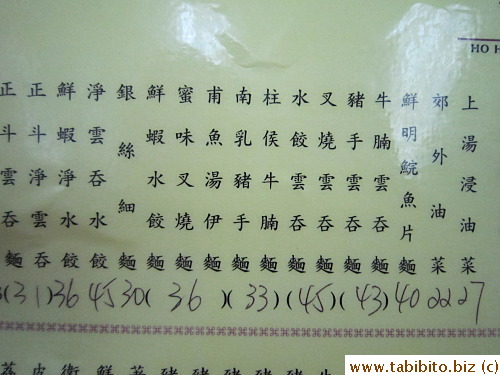 HO H
上湯浸油菜
郊外油菜
鮮明鯇魚片麵
牛腩雲吞麵
豬手雲吞麵
叉燒雲吞麵
水餃雲吞麵
柱侯牛腩麵
南乳豬手麵
甫魚湯伊麵
蜜味叉燒麵
鮮蝦水餃麵
銀絲細麵
淨雲吞水餃
鮮蝦淨水餃
正斗淨雲吞
正斗雲吞麵
(31)36 45 30( 36 )( 33 )(45)(43)40 22 27
www.tabibito.biz (c)